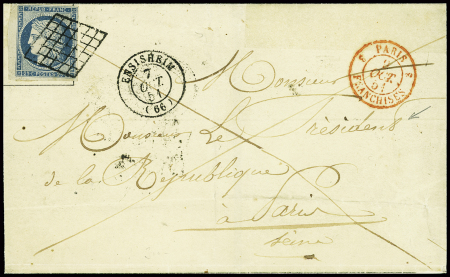 REPUB. FRANC.
POSTES
ENSISHEIM
7
OCT.
51
(66)
PARIS
OCT
51
FRANCHISES
Monsieur
Monsieur Le Président
de la République
à Paris
Seine